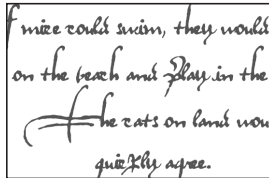 f mice could swim, they would
on the beach and Play in the
The cats on land wou
quickly agree.